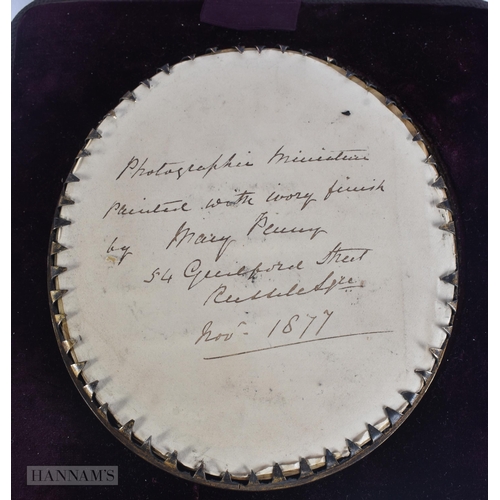 Photographic Miniature
painted with ivory finish
by Mary Penny
54 Guilford Street
Russell Sqre
Novr 1877
HANNAM'S